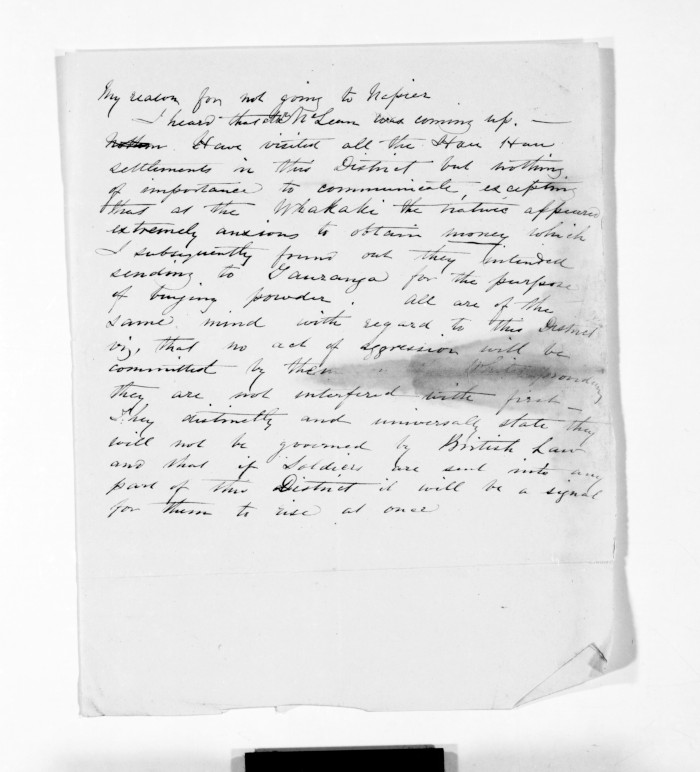 My reason for not going to Napier
I heard that Mr McLean was coming up. —
Nothin Have visited all the Hau Hau
settlements in this District but nothing
of importance to communicate, excepting
that at the Whakaki the natives appeared
extremely anxious to obtain money which
I subsequently found out they intended
sending to Tauranga for the purpose
of buying powder. All are of the
same mind with regard to this District
viz, that no act of aggression will be
committed by them providing
they are not interfered with first —
They distinctly and universally state they
will not be governed by British Law
and that if Soldiers are sent into any
part of this District it will be a signal
for them to rise at once